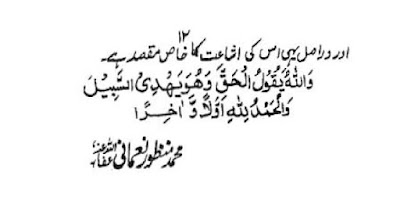 ۱۲
اور دراصل یہی اس کی اشاعت کا خاص مقصد ہے۔
وَاللّٰهُ يَقُوْلُ الْحَقَّ وَهُوَ يَهْدِی السَّبِيْلَ
وَالْحَمْدُ لِلّٰهِ اَوَّلًا وَّاٰخِرًا
محمد منظور نعمانی عفا اللہ عنہ